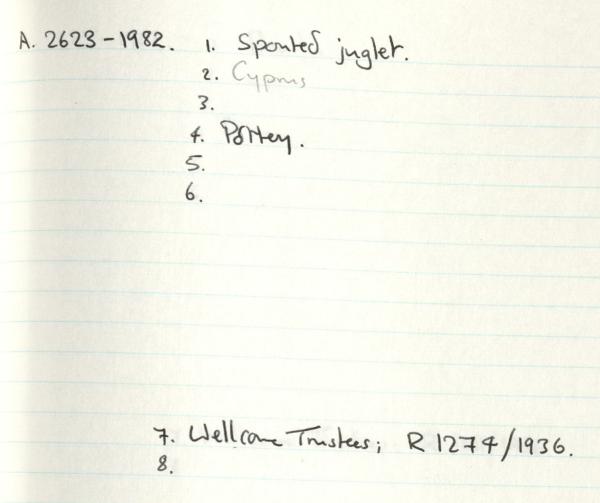 A. 2623-1982. 1. Spouted juglet.
2. Cyprus
3.
4. Pottery.
5.
6.
7. Wellcome Trustees; R 1274/1936.
8.